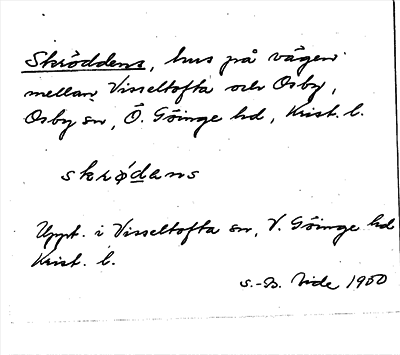 Skröddens, hus på vägen
mellan Visseltofta och Osby,
Osby sn, Ö. Göinge hd, Krist. l.
skrødans
Uppt. i Visseltofta sn, V. Göinge hd
Krist. l.
S.-B. Vide 1950